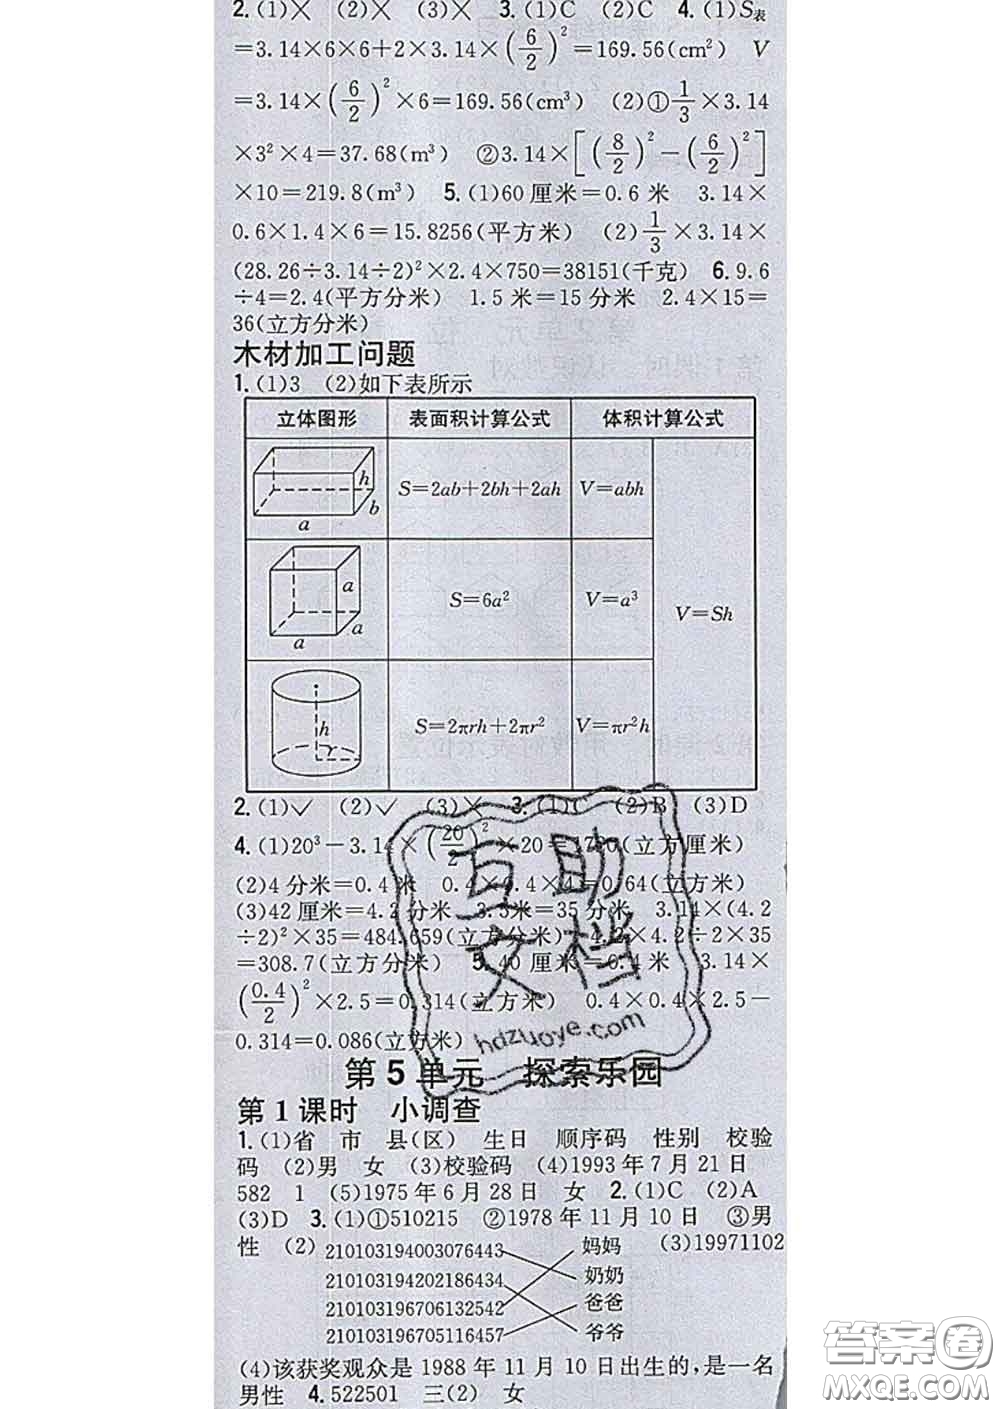 2.(1)× (2)× (3)× 3.(1)C (2)C 4.(1)S表
=3.14×6×6+2×3.14×(6/2)²=169.56(cm²) V
=3.14×(6/2)²×6=169.56(cm³) (2)①1/3×3.14
×3²×4=37.68(m³) ②3.14×[(8/2)²-(6/2)²]
×10=219.8(m³) 5.(1)60厘米=0.6米 3.14×
0.6×1.4×6=15.8256(平方米) (2)1/3×3.14×
(28.26÷3.14÷2)²×2.4×750=38151(千克) 6.9.6
÷4=2.4(平方分米) 1.5米=15分米 2.4×15=
36(立方分米)
木材加工问题
1.(1)3 (2)如下表所示
立体图形 表面积计算公式 体积计算公式
h b a S=2ab+2bh+2ah V=abh
a a a S=6a² V=a³ V=Sh
h r S=2πrh+2πr² V=πr²h
2.(1)✓ (2)✓ (3)× 3.(1) (2)B (3)D
4.(1)20³-3.14×(20/2)²×20=1720(立方厘米)
(2)4分米=0.4米 0.4×0.4×4=0.64(立方米)
(3)42厘米=4.2分米 3.5米=35分米 3.14×(4.2
÷2)²×35=484.659(立方分米) 4.2×4.2÷2×35
=308.7(立方分米) 5.40厘米=0.4米 3.14×
(0.4/2)²×2.5=0.314(立方米) 0.4×0.4×2.5-
0.314=0.086(立方米)
互助
文档
hdzuoye.com
第5单元 探索乐园
第1课时 小调查
1.(1)省 市 县(区) 生日 顺序码 性别 校验
码 (2)男 女 (3)校验码 (4)1993年7月21日
582 1 (5)1975年6月28日 女 2.(1)C (2)A
(3)D 3.(1)①510215 ②1978年11月10日 ③男
性 (2) 210103194003076443 妈妈 (3)19971102
210103194202186434 奶奶
210103196706132542 爸爸
210103196705116457 爷爷
(4)该获奖观众是1988年11月10日出生的,是一名
男性 4.522501 三(2) 女
答案圈
MXQE.COM